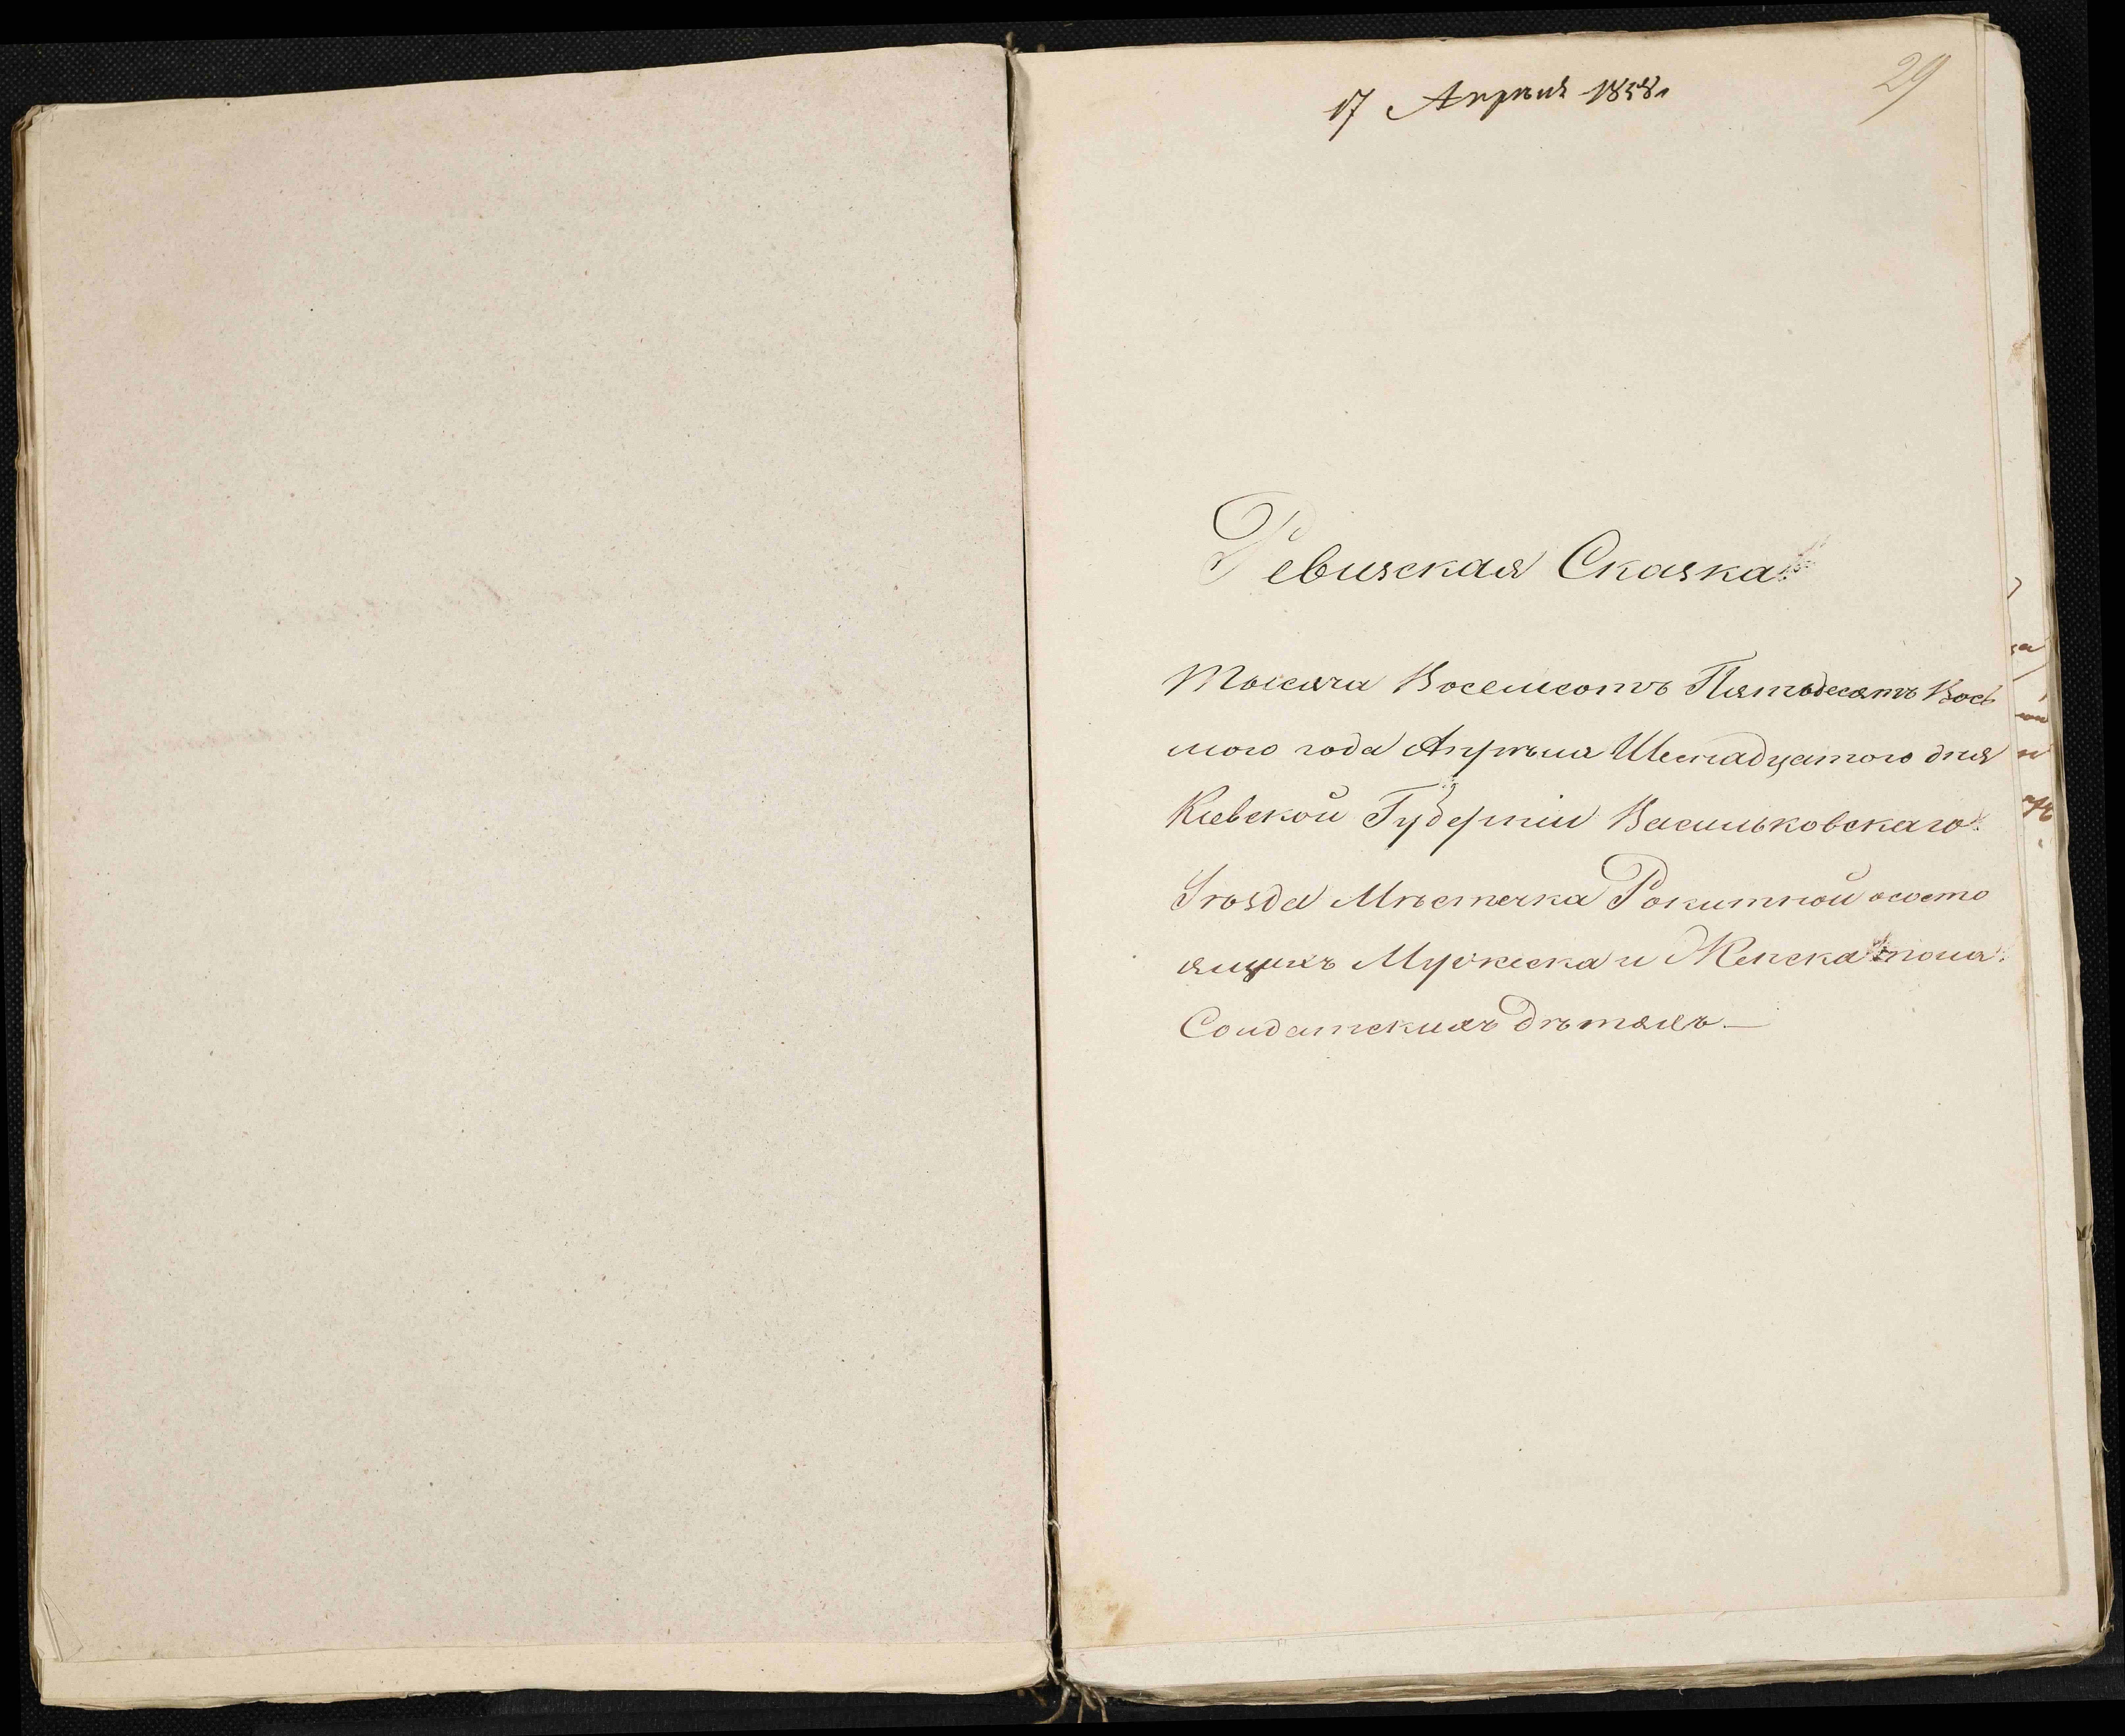 17 Апрѣля 1858г
29
Ревизская Сказка
Тысяча Восемсотъ Пятьдесятъ Вось
мого года Апрѣля Шестнадцатого дня
Киевской Губерніи Васильковскаго
Уѣзда Мѣстечка Рокитной о состо
ящихъ Мужеска и Женска пола
Солдатскихъ Дѣтяхъ —